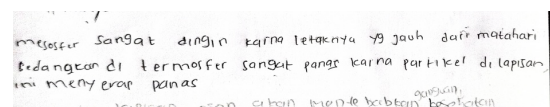 mesosfer sangat dingin karna letaknya yg jauh dari matahari
sedangkan di termosfer sangat panas karna partikel di lapisan
ini menyerap panas
gangguan